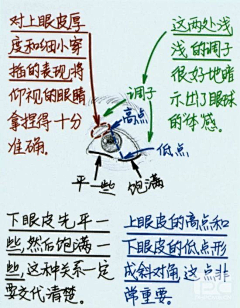 对上眼皮厚
度和细小穿
插的表现将
仰视的眼睛
拿捏得十分
准确。
这两处浅
浅的调子
很好地暗
示出了眼球
的体感。
调子
高点
低点
平一些 饱满
下眼皮先平一
些,然后饱满一
些,这种关系一定
要交代清楚。
上眼皮的高点和
下眼皮的低点形
成斜对角,这点非
常重要。